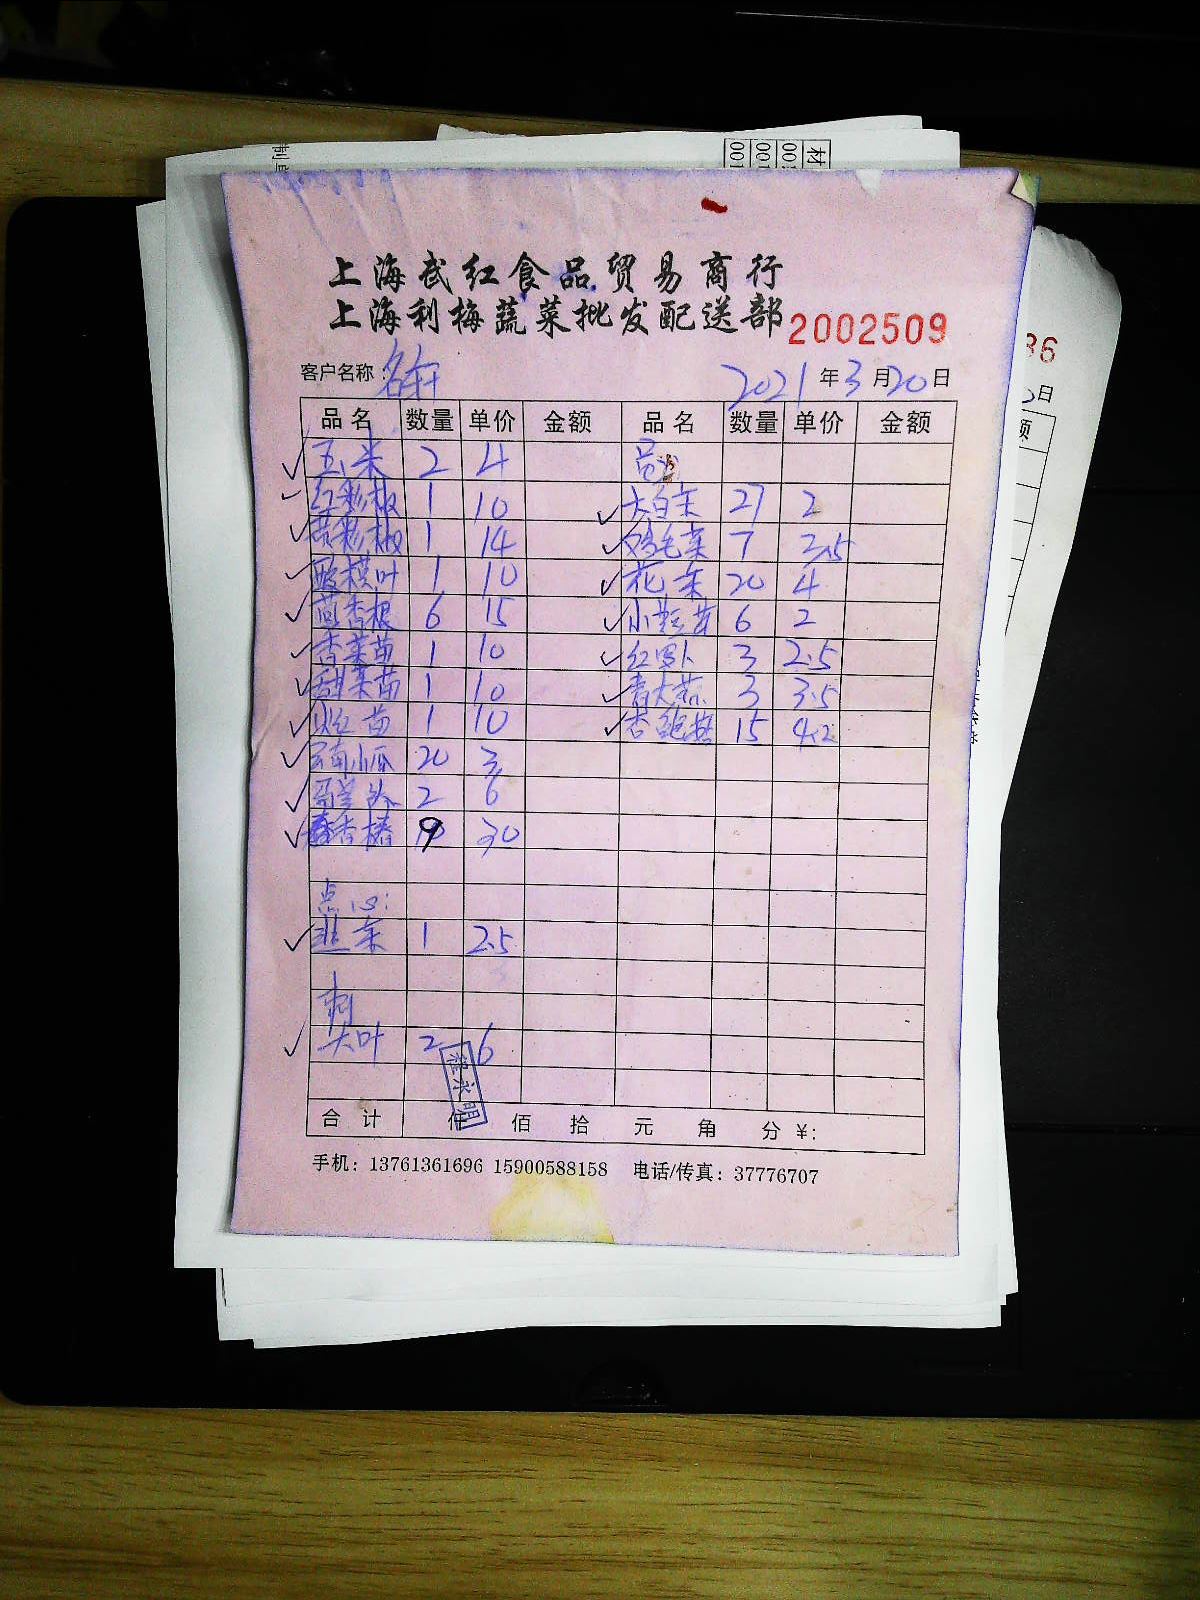 上海武红食品贸易商行
上海利梅蔬菜批发配送部 2002509
客户名称：名轩 2021年3月20日
品名 数量 单价 金额 品名 数量 单价 金额
玉米 2 4
红彩椒 1 10 大白菜 27 2
黄彩椒 1 14 鸡毛菜 7 3.5
酸模叶 1 10 花菜 20 4
茴香根 6 15 6 2
香菜苗 1 10 红罗卜 3 2.5
甜菜苗 1 10 青大蒜 3 3.5
火红苗 1 10 杏鲍菇 15 4.2
云南小瓜 20 3
马兰头 2 6
香椿 9 30
点心：
韭菜 1 2.5
刺
大叶 2 6
程永明
合计 仟 佰 拾 元 角 分 ¥:
手机：13761361696 15900588158 电话/传真：37776707
材
日
额